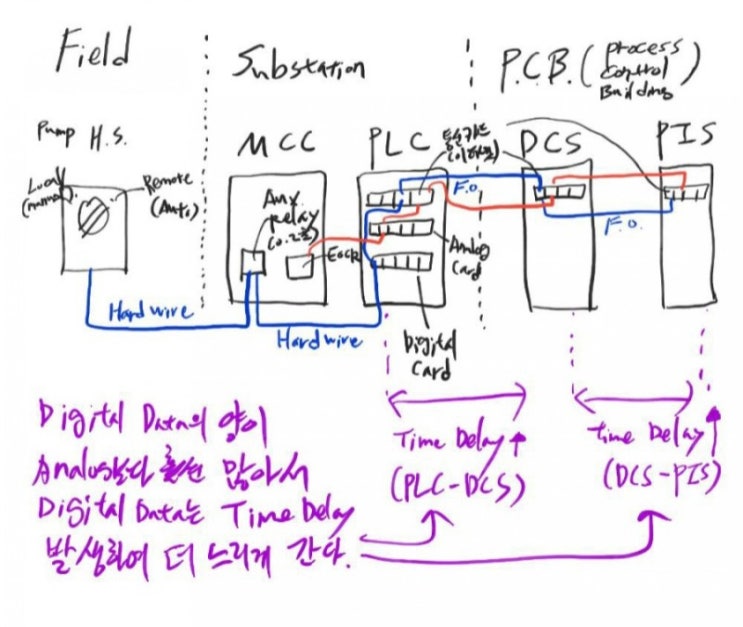 Field
Substation
P.C.B. (Process Control Building)
Pump H.S.
MCC
PLC
통신카드
(이하동)
DCS
PIS
Local
(manual)
Remote
(Auto)
Aux.
relay
(0.2초)
EOCR
F.O.
F.O.
Analog
Card
Hard wire
Hard wire
Digital
Card
Digital Data의 양이
Analog보다 훨씬 많아서
Digital Data는 Time Delay
발생하여 더 느리게 간다.
Time Delay↑
(PLC-DCS)
time Delay↑
(DCS-PIS)